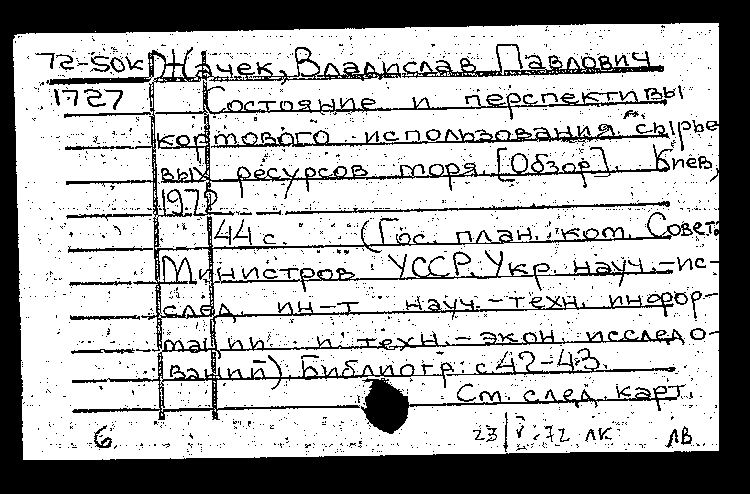 72-50к Дячек, Владислав Павлович
1727 Состояние и перспективы
кормового использования сырье-
вых ресурсов моря. [Обзор]. Киев,
1972
44 с. (Гос. план. ком. Совет.
Министров УССР. Укр. науч.-ис-
след. ин-т науч.-техн. инфор-
мации и техн.-экон. исследо-
ваний). Библиогр: с. 42-43.
См. след. карт.
6 23/V-72 ЛК ЛВ